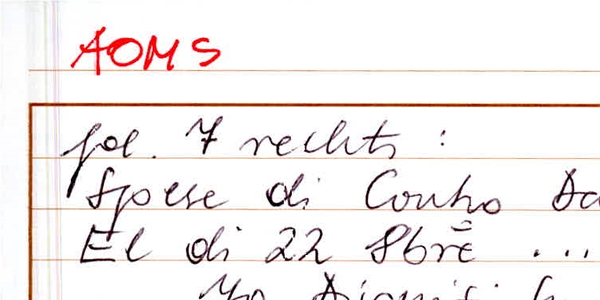 AOMS
fol. 7 rechts :
Spese di Conto
El di 22 8bre ...